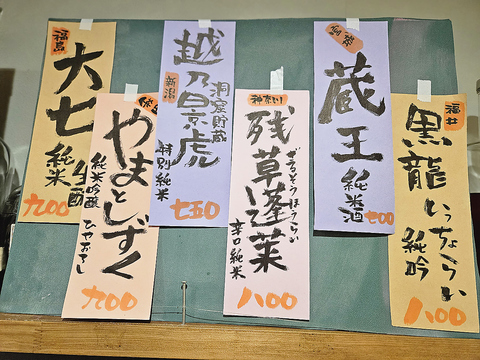 福島
大七
純米
生酛
九00
やまとしずく
純米吟醸
ひやおろし
九00
越乃景虎
新潟
洞窟貯蔵
特別純米
七五0
神奈川
残草蓬莱
ざるそうほうらい
辛口純米
八00
宮城
蔵王
純米酒
七00
福井
黒龍
いっちょらい
純吟
八00